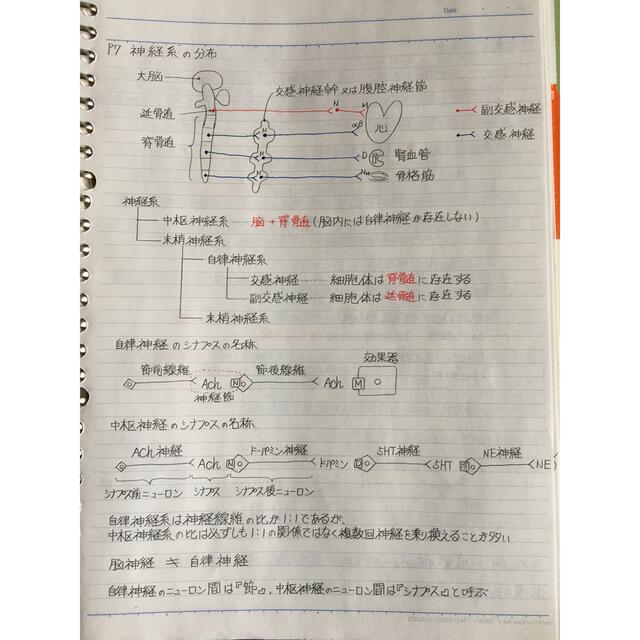 Date
P7 神経系の分布
大脳
交感神経幹又は腹腔神経節
延骨直
N
M
心
副交感神経
脊骨直
N
αβ
交感神経
N
D
腎血管
N
NM
骨格筋
神経系
中枢神経系 …… 脳+脊骨直(脳内には自律神経が存在しない)
末梢神経系
自律神経系
交感神経 …… 細胞体は脊骨直に存在する
副交感神経 …… 細胞体は延骨直に存在する
末梢神経系
自律神経のシナプスの名称
効果器
節前線維 節後線維
Ach N Ach M
神経節
中枢神経のシナプスの名称
ACh神経 ドーパミン神経 5HT神経 NE神経
Ach N ドパミン D 5HT NE
シナプス前ニューロン シナプス シナプス後ニューロン
自律神経系は神経線維の比が1:1であるが、
中枢神経系の比は必ずしも1:1の関係ではなく複数回神経を乗り換えることが多い
脳神経 ≠ 自律神経
自律神経のニューロン間は『節』,中枢神経のニューロン間は『シナプス』と呼ぶ